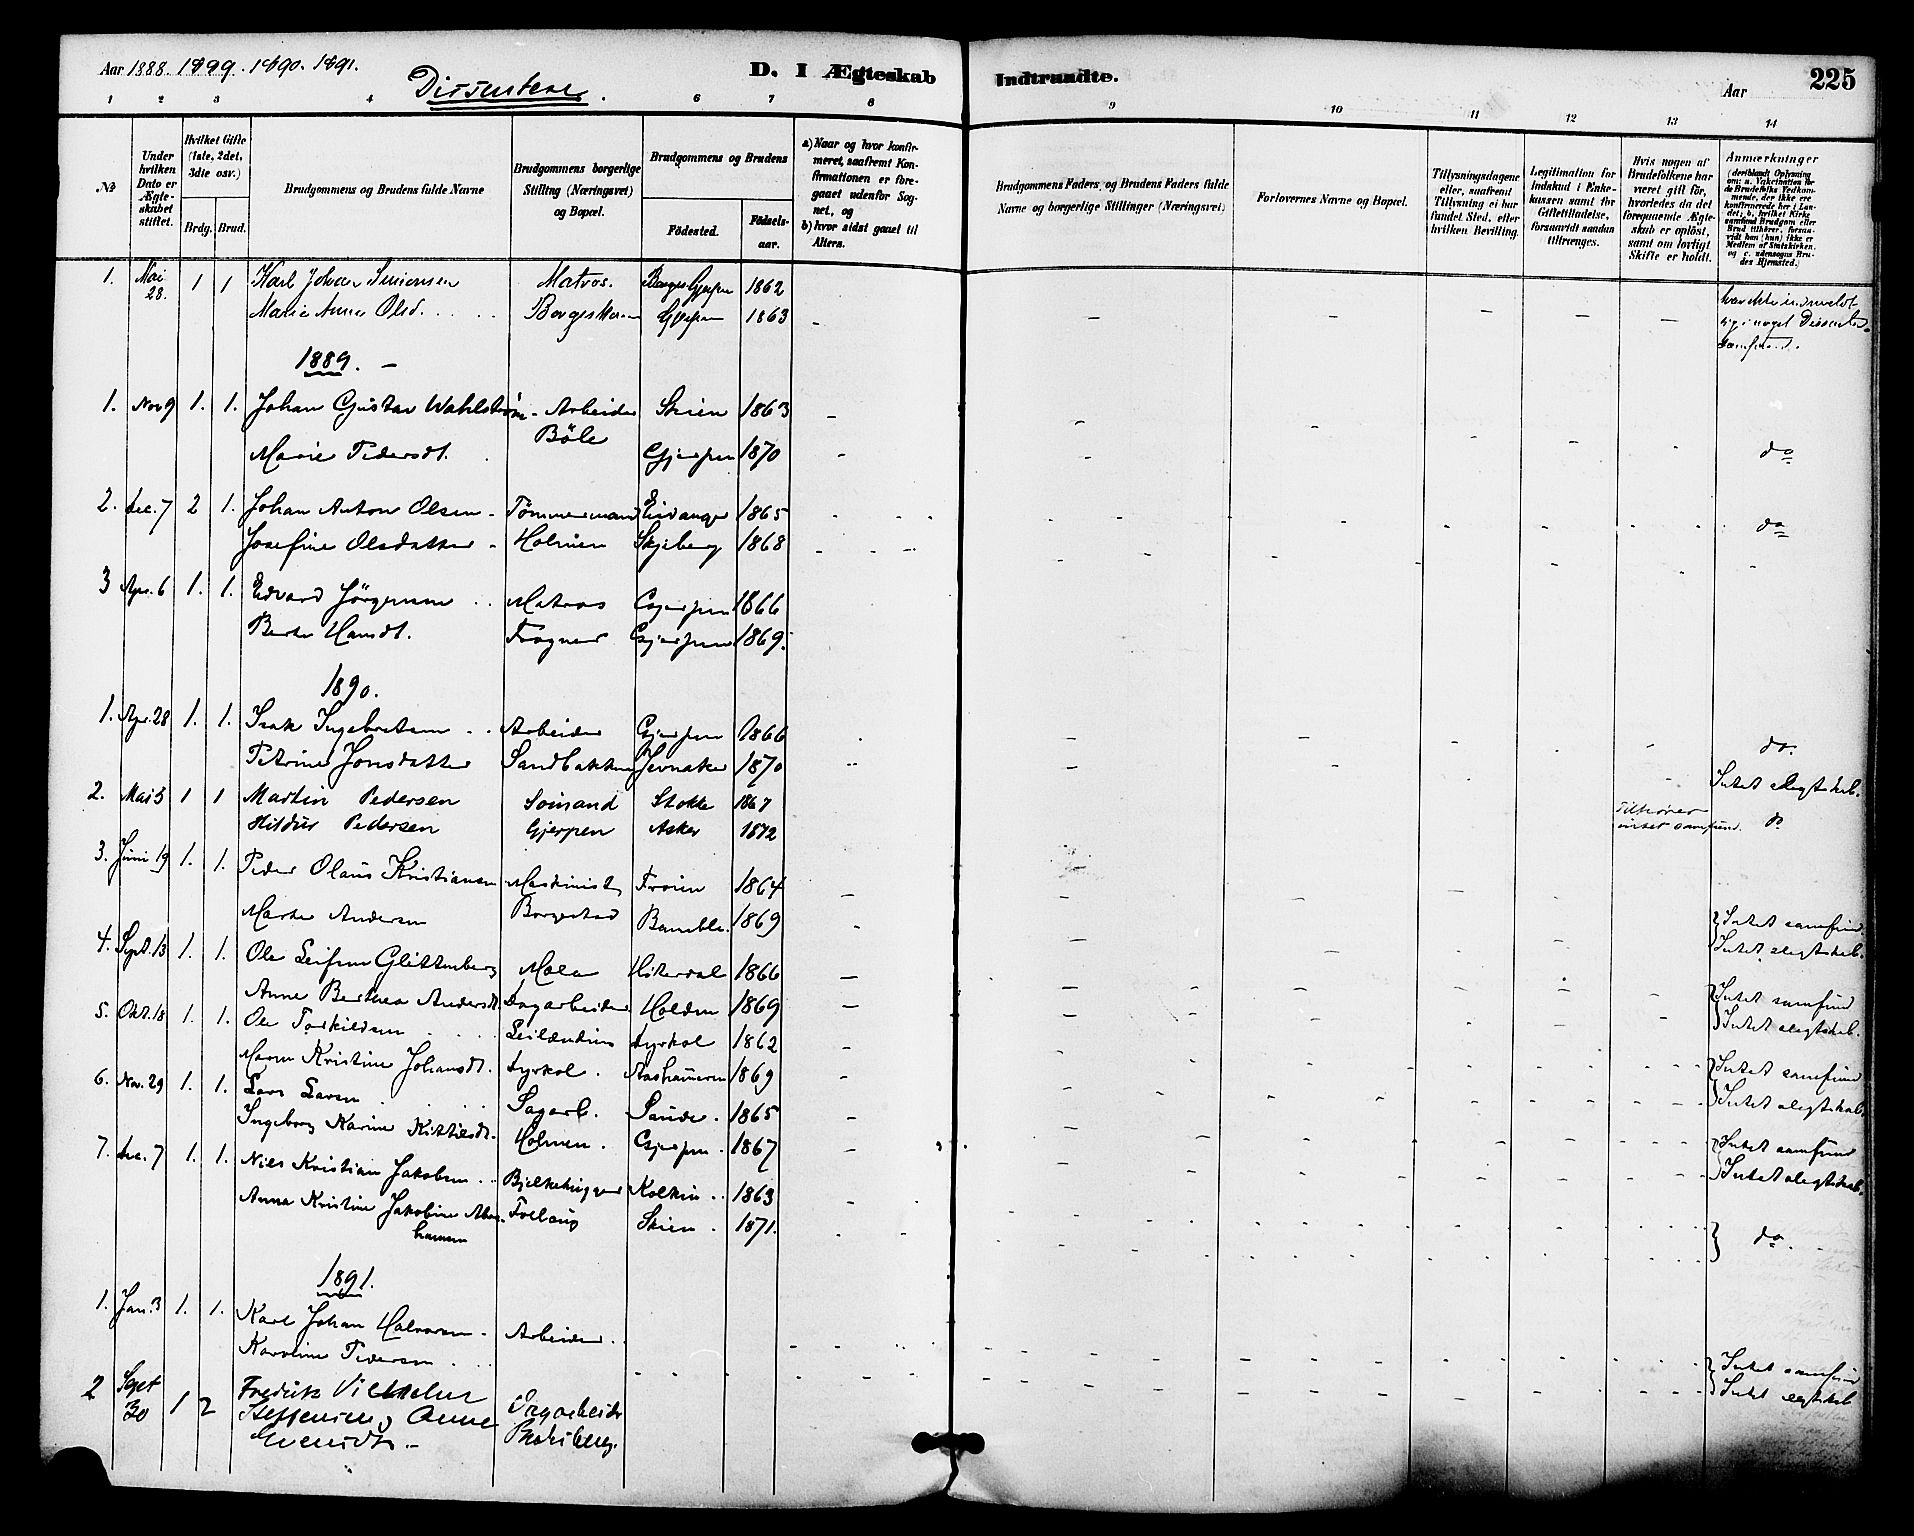 Aar 1888. 1899. 1890. 1891.
Dissentere.
D. I Ægteskab
Indtraadte.
Aar
225
1 2 3 4 6 7 8 9 10 11 12 13 14
No
Under hvilken Dato er Ægteskabet stiftet.
Hvilket Gifte (1ste, 2det, 3die osv.)
Brdg. Brud.
Brudgommens og Brudens fulde Navne
Brudgommens borgerlige Stilling (Næringsvei) og Bopæl.
Brudgommens og Brudens
Födested.
Födselsaar.
a) Naar og hvor konfirmeret, saafremt Konfirmationen er foregaaet udenfor Sognet, og
b) hvor sidst gaaet til Alters.
Brudgommens Faders, og Brudens Faders fulde Navne og borgerlige Stillinger (Næringsvei)
Forlovernes Navne og Bopæl.
Tillysningsdagene eller, saafremt Tillysning ei har fundet Sted, efter hvilken Bevilling.
Legitimation for Indskud i Enkekassen samt for Giftetilladelse, forsaavidt saadan tiltrænges.
Hvis nogen af Brudefolkene har været gift för, hvorledes da det foregaaende Ægteskab er oplöst, samt om lovligt Skifte er holdt.
Anmerkninger
(deriblandt Oplysning om: a. Vakcination for de Brudefolks Vedkommende, der ikke ere konfirmerede her i Landet; b. hvilket Kirkesamfund Brudgom eller Brud tilhörer, forsaavidt han (hun) ikke er Medlem af Statskirken, og c. udensogns Brudes Hjemsted.)
1. Mai 28. 1 1 Karl Johan Simensen Matros. Gjerpen 1862
Marie Anne Olsd. Gjerpen 1863
1889.
1. Nov 9 1. 1. Johan Gustav Wahlström Arbeider Skien 1863
Böle
Marie Pedersdt. Gjerpen 1870 do
2. Dec. 7 2 1. Johan Anton Olsen Tömmermand Eidanger 1865 do
Josefine Olsdatter Holmen Skjeberg 1868
3 Apr. 6 1. 1. Edvard Jörgensen Matros Gjerpen 1866
Berte Hansdt. Frogner Gjerpen 1869.
1890.
1. Apr. 28 1. 1. Isak Ingebretsen Arbeider Gjerpen 1866
Petrine Jonsdatter Sandbakken Jevnaker 1870 do.
2. Mai 5 1 1 Martin Pedersen Sömand Stokke 1867 Intet slegtskab.
Hildur Pedersen Gjerpen Asker 1872 Tilhører intet samfund. do
3. Juni 19 1. 1. Peder Olaus Kristiansen Maskinist 1864
Marte Andersen Borgestad Bamble. 1869 Intet samfund
4. Sept. 13 1. 1. Ole Leifsen Glittenberg Hiterdal 1866 Intet slegtskab.
Anne Berthea Andersdt. Dagarbeider Holden 1869 Intet samfund
5. Okt. 18 1. 1. Ole Torkildsen Leilænding Dyrkol 1862 Intet slegtskab.
Maren Kristine Johansdt. Dyrkol. 1869 Intet samfund
6. Nov. 29 1. 1. Lars Larsen Sagarb. Sande. 1865 Intet slegtskab.
Ingeborg Karine Kittilsdt. Holmen. Gjerpen. 1867 Intet samfund
7. Dec. 7 1. 1. Niels Kristian Jakobsen 1863 Intet slegtskab.
Anna Kristine Jakobine Abrahamsen Skien. 1871. do.
1891.
1. Jan. 3 1. 1. Karl Johan Halvorsen Arbeider
Karoline Pedersen Intet samfund
2 Sept 30 1 2 Fredrik Vilhelm Intet slegtskab
Steffensen og Anne Dagarbeider
Evensdt.